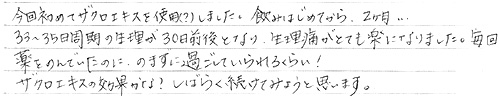 今回初めてザクロエキスを使用(?)しました。飲みはじめてから、2ヶ月…
33～35日周期の生理が30日前後となり、生理痛がとても楽になりました。毎回
薬をのんでいたのに、のまずに過ごしていられるくらい!
ザクロエキスの効果かな?しばらく続けてみようと思います。